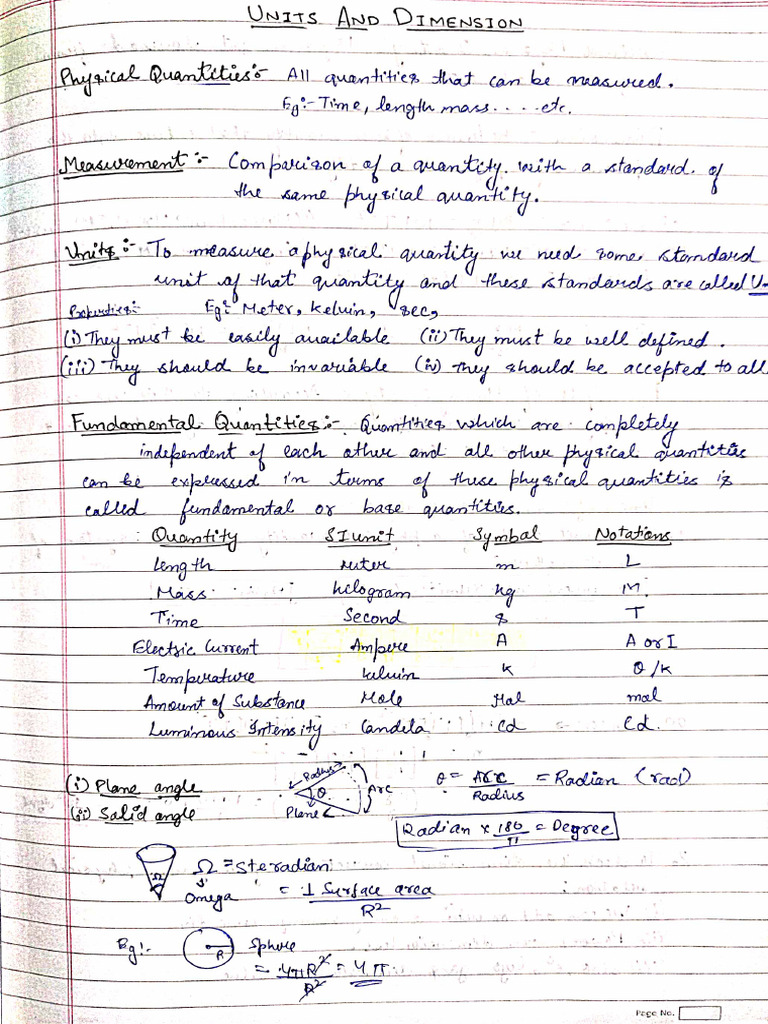 UNITS AND DIMENSION
Physical Quantities:- All quantities that can be measured.
Eg:- Time, length mass.....etc.
Measurement:- Comparison of a quantity with a standard of
the same physical quantity.
Units:- To measure a physical quantity we need some standard
unit of that quantity and these standards are called Un
Properties:- Eg:- Meter, kelvin, sec,
(i) They must be easily available (ii) They must be well defined.
(iii) They should be invariable (iv) They should be accepted to all
Fundamental Quantities:- Quantities which are completely
independent of each other and all other physical quantities
can be expressed in terms of these physical quantities is
called fundamental or base quantities.
Quantity SI unit Symbol Notations
Length meter m L
Mass kilogram kg M
Time Second s T
Electric Current Ampere A A or I
Temperature kelvin K θ/K
Amount of Substance Mole Mol mol
Luminous Intensity Candela Cd Cd.
(i) Plane angle Radius θ Arc Plane ∠ θ = Arc/Radius = Radian (rad)
(ii) Solid angle
Radian x 180/π = Degree
Ω Ω = Steradian
Omega = ⊥ Surface area/R²
Eg:- R Sphere
= 4πR²/R² = 4π
Page No.